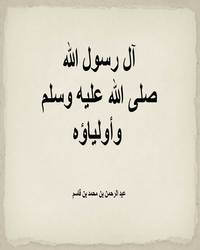 آل رسول الله
صلى الله عليه وسلم
وأولياؤه
عبد الرحمن بن محمد بن قاسم